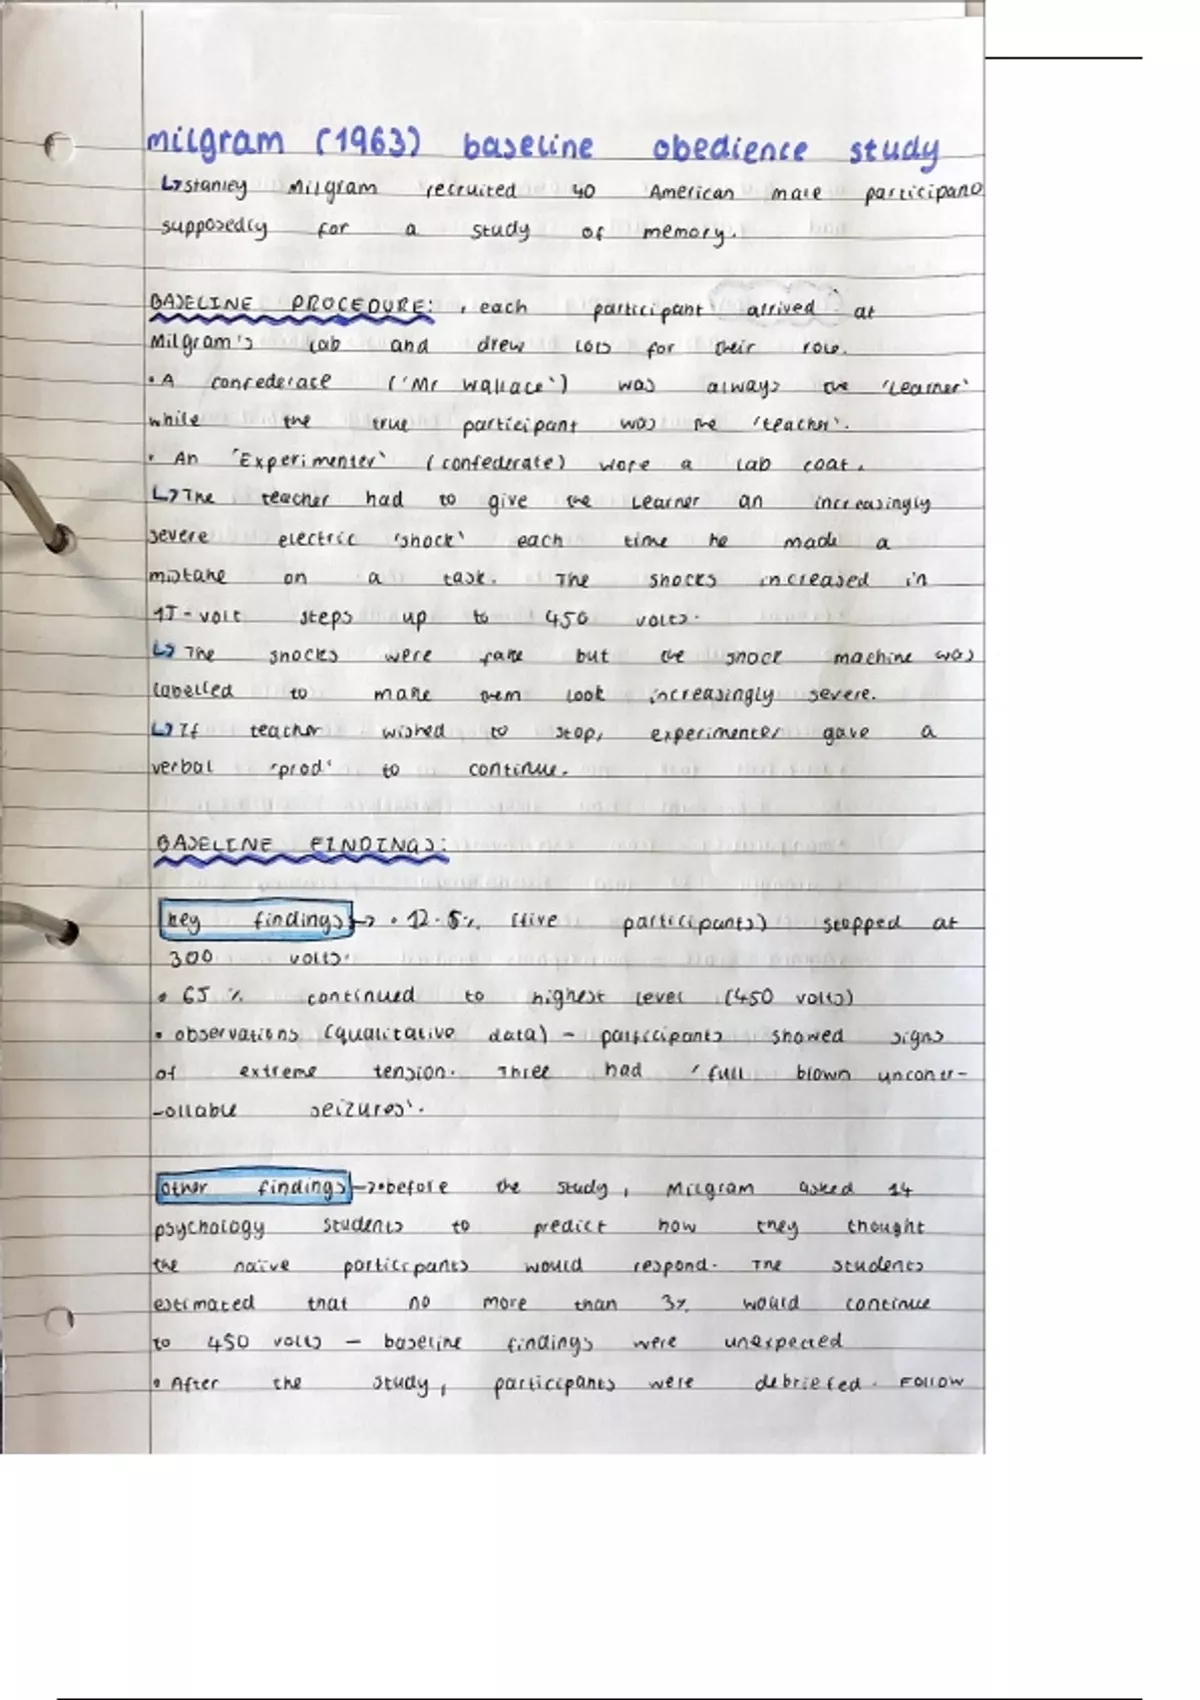 milgram (1963) baseline obedience study
↳ stanley Milgram recruited 40 American male participan
supposedly for a study of memory.
BASELINE PROCEDURE: • each participant arrived at
Milgram's lab and drew lots for their role.
• A confederate ('Mr Wallace') was always the 'Learner'
while the true participant was the 'teacher'.
• An 'Experimenter' (confederate) wore a lab coat.
↳ The teacher had to give the Learner an increasingly
severe electric 'shock' each time he made a
mistake on a task. The shocks increased in
15-volt steps up to 450 volts.
↳ The shocks were fake but the shock machine was
labelled to make them look increasingly severe.
↳ If teacher wished to stop, experimenter gave a
verbal 'prod' to continue.
BASELINE FINDINGS:
key findings → • 12.5% (five participants) stopped at
300 volts.
• 65% continued to highest level (450 volts)
• observations (qualitative data) - participants showed signs
of extreme tension. Three had 'full blown uncontr-
-ollable seizures'.
other findings → • before the study, Milgram asked 14
psychology students to predict how they thought
the naïve participants would respond. The students
estimated that no more than 3% would continue
to 450 volts - baseline findings were unexpected
• After the study, participants were debriefed. Follow